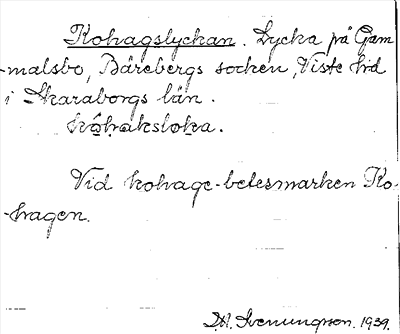 Kohagslyckan. Lycka på Gam
-malsbo, Bärebergs socken, Viste hd
i Skaraborgs län.
kohaksloka.
Vid kohage-betesmarken Ko-
-hagen.
D.A. Svenungson. 1939.